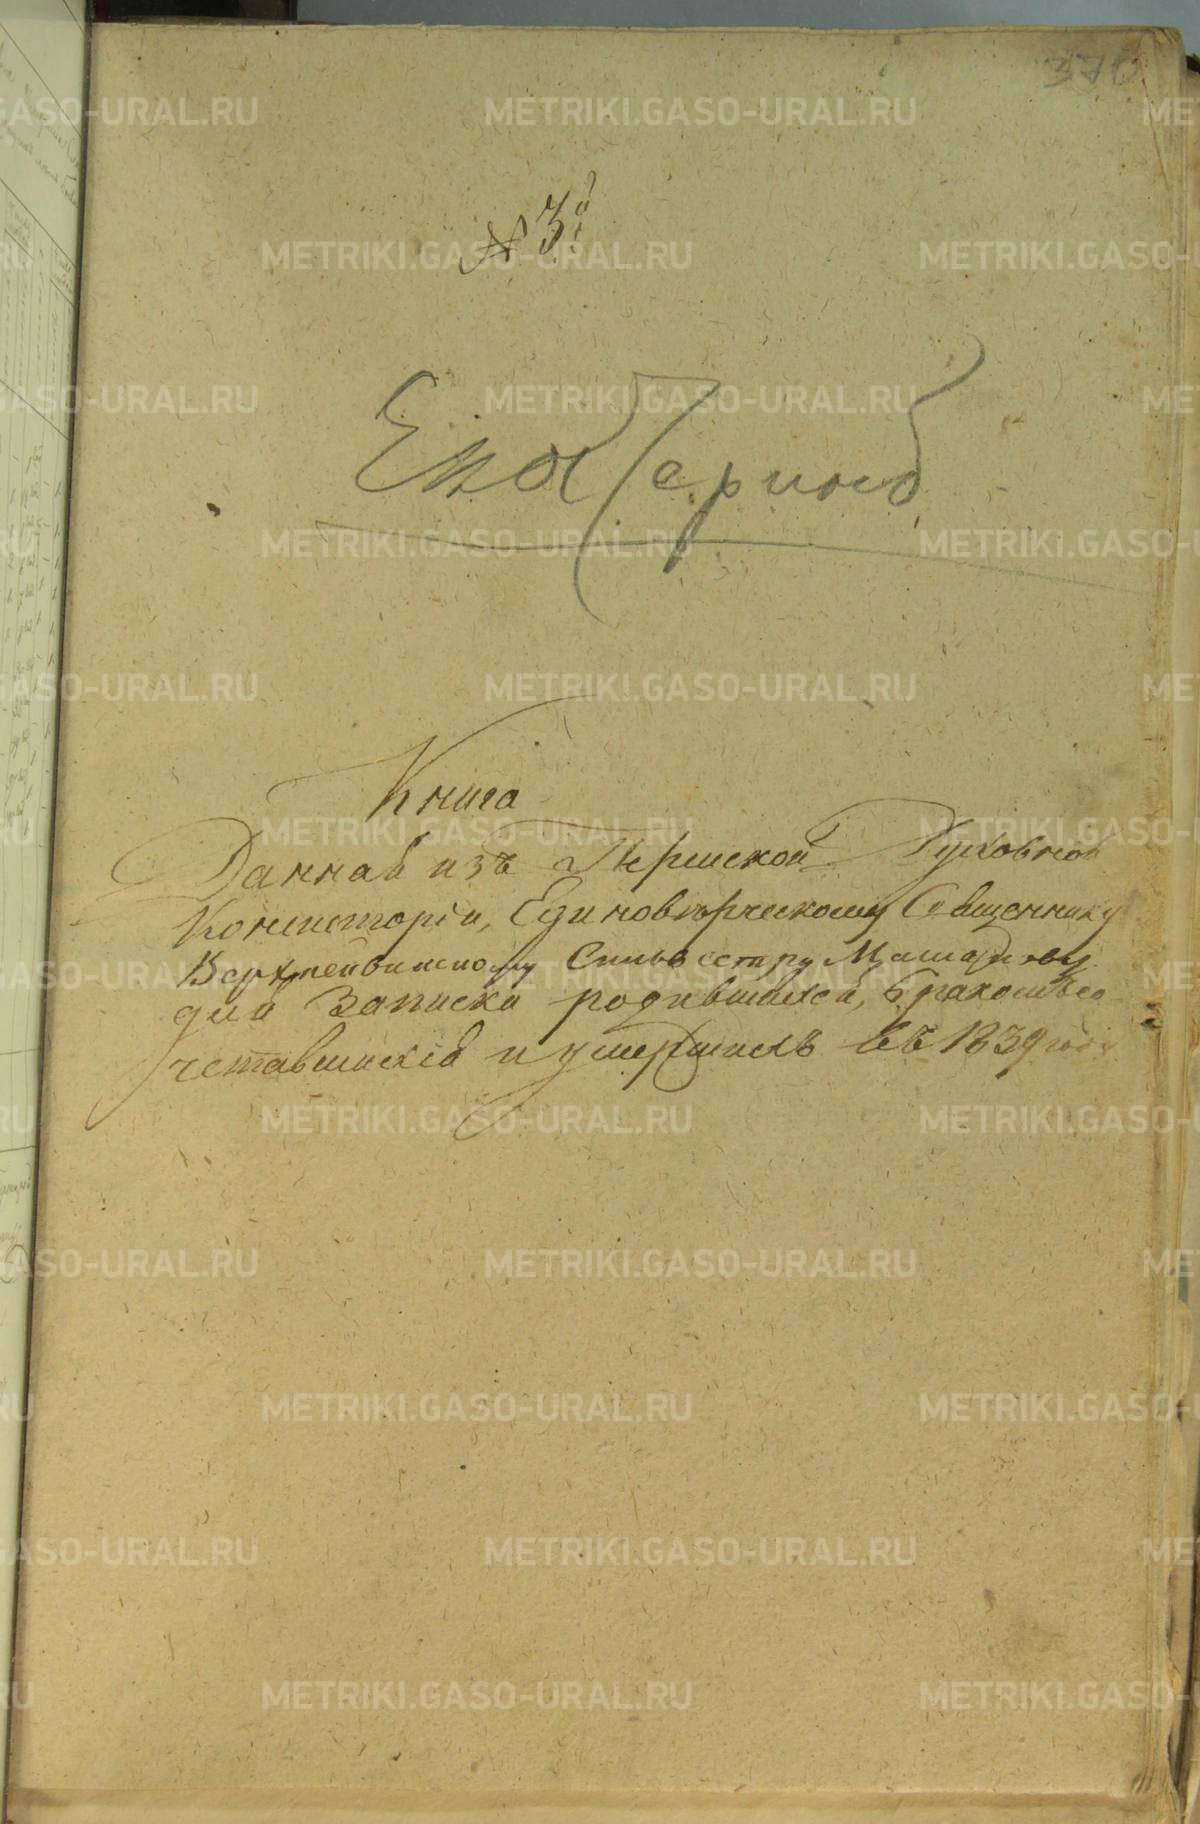 370
№ 3й
Екатеринб
Книга
Данная изъ Пермской Духовной
Консисторіи, Единовѣрческому Священнику
Верхнейвинскому Сильвестру
для записки родившихся, бракомъ со
четавшихся и умершихъ въ 1839 году
METRIKI.GASO-URAL.RU